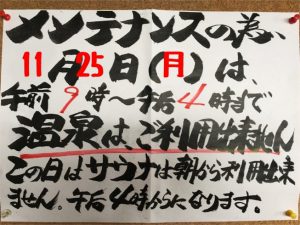 メンテナンスの為、
11月25日(月)は、
午前9時～午后4時まで
温泉は、ご利用出来ません
この日はサウナは朝から利用出来
ません。午后4時からになります。